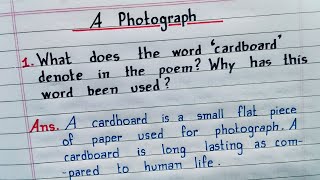 A Photograph
1. What does the word 'cardboard'
denote in the poem? Why has this
word been used?
Ans. A cardboard is a small flat piece
of paper used for photograph. A
cardboard is long lasting as com-
pared to human life.